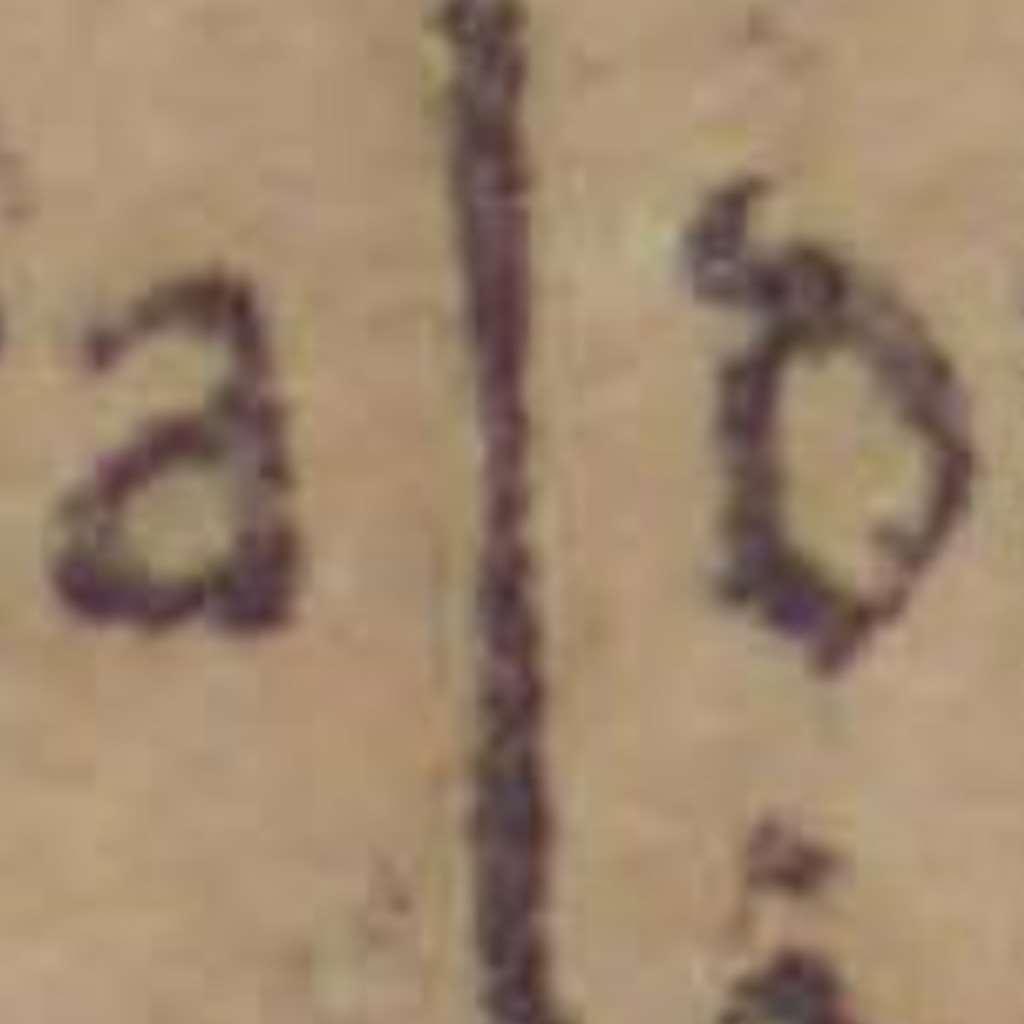 a | b